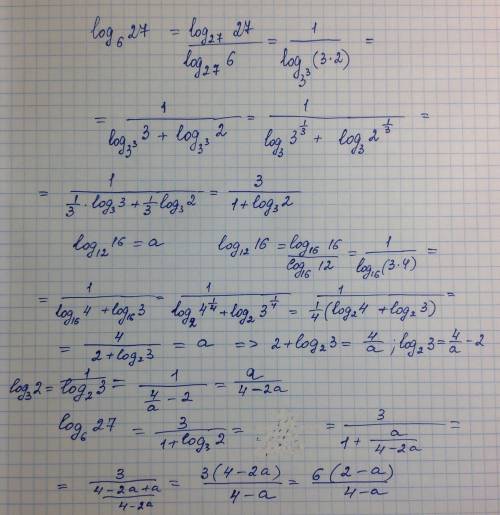 log₆ 27 = log₂₇ 27 / log₂₇ 6 = 1 / log₃³ (3·2) =
= 1 / (log₃³ 3 + log₃³ 2) = 1 / (log₃ 3^(1/3) + log₃ 2^(1/3)) =
= 1 / (1/3 · log₃ 3 + 1/3 log₃ 2) = 3 / (1 + log₃ 2)
log₁₂ 16 = a log₁₂ 16 = log₁₆ 16 / log₁₆ 12 = 1 / log₁₆ (3·4) =
= 1 / (log₁₆ 4 + log₁₆ 3) = 1 / (log₂ 4^(1/4) + log₂ 3^(1/4)) = 1 / (1/4 (log₂ 4 + log₂ 3)) =
= 4 / (2 + log₂ 3) = a => 2 + log₂ 3 = 4/a ; log₂ 3 = 4/a - 2
log₃ 2 = 1 / log₂ 3 = 1 / (4/a - 2) = a / (4 - 2a)
log₆ 27 = 3 / (1 + log₃ 2) = = 3 / (1 + a / (4 - 2a)) =
= 3 / ((4 - 2a + a) / (4 - 2a)) = 3(4 - 2a) / (4 - a) = 6(2 - a) / (4 - a)